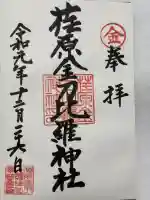 ㊎奉拝
荏原金刀比羅神社
令和元年十二月二六日